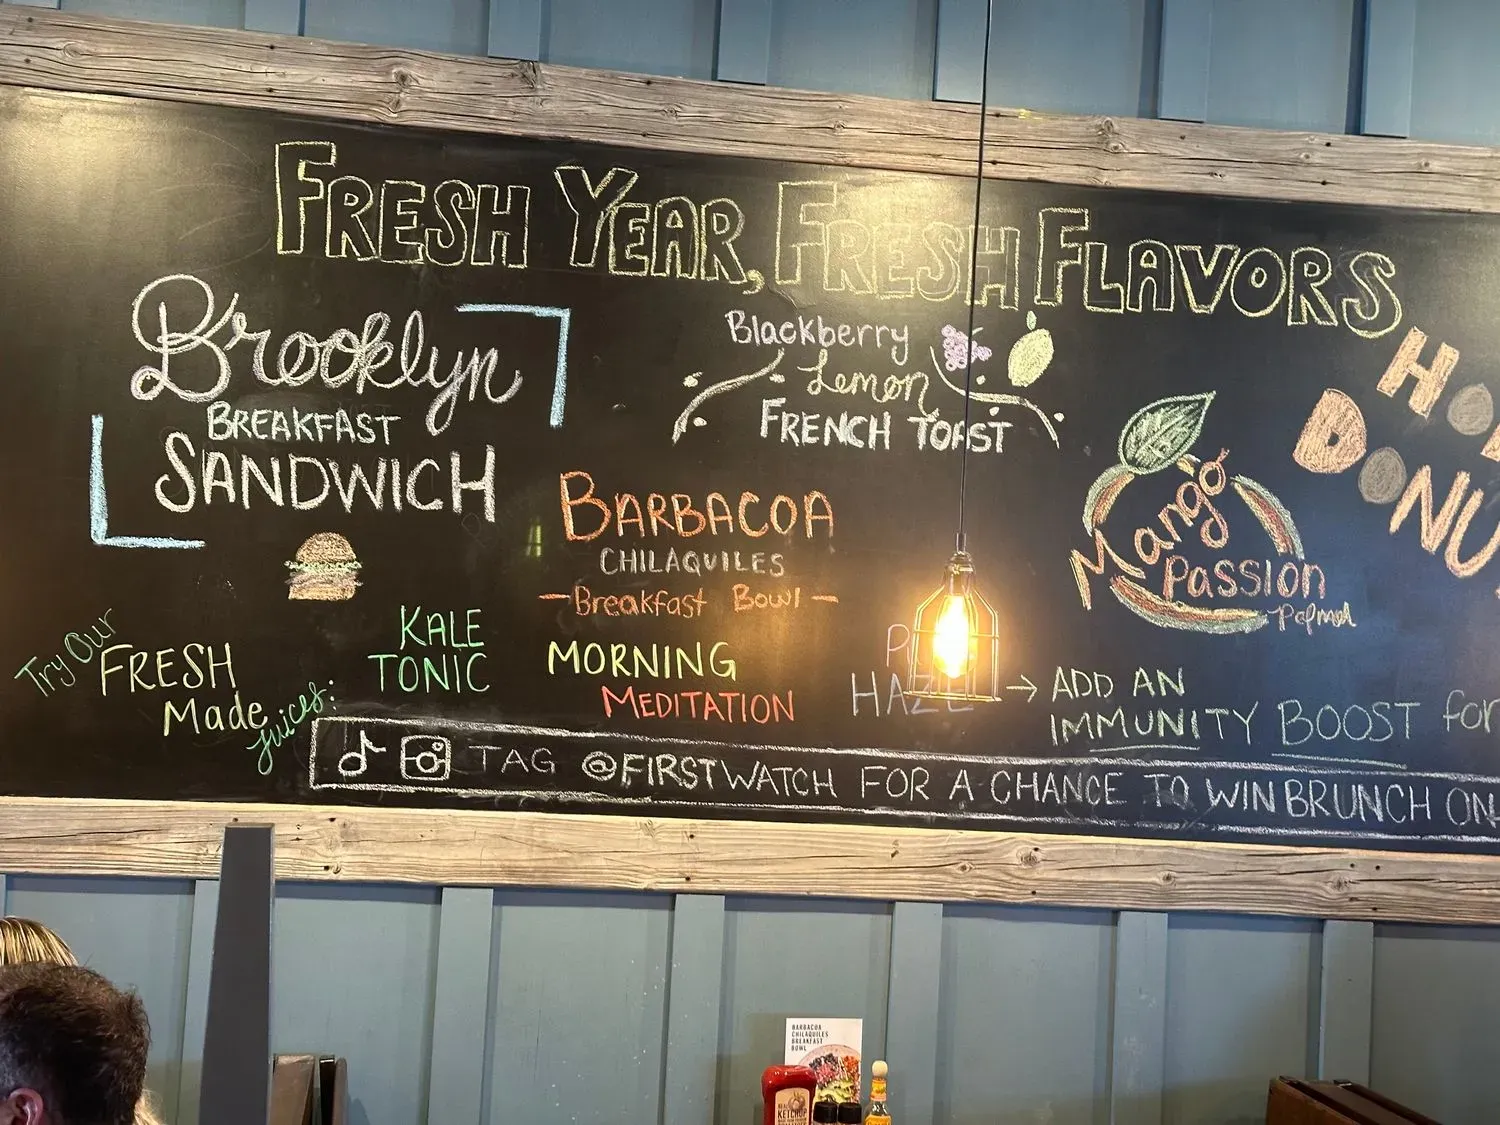 FRESH YEAR, FRESH FLAVORS
Brooklyn
BREAKFAST
SANDWICH
Blackberry
Lemon
FRENCH TOAST
BARBACOA
CHILAQUILES
-Breakfast Bowl-
Mango
Passion
Palmer
Try Our
FRESH
Made
Juices:
KALE
TONIC
MORNING
MEDITATION
HAZE
→ ADD AN
IMMUNITY BOOST for
TAG @FIRSTWATCH FOR A CHANCE TO WIN BRUNCH ON
BARBACOA
CHILAQUILES
BREAKFAST
BOWL
KETCHUP